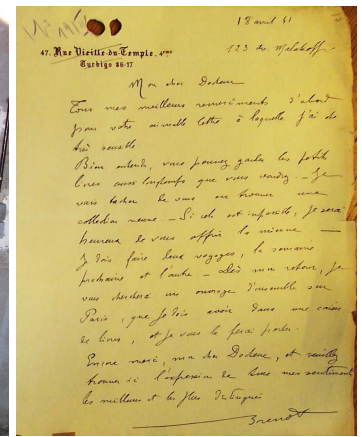 18 avril 41
47, Rue Vieille-du-Temple, 4ème
Turbigo 86-17
123 Av. Malakoff
Mon cher Docteur
Tous mes meilleurs remerciements d'abord
pour votre aimable lettre à laquelle j'ai été
très sensible
Bien entendu, vous pouvez garder les petits
livres aussi longtemps que vous voudrez. - Je
vais tacher de vous en trouver une
collection neuve. - Si cela est impossible, je serai
heureux de vous offrir la mienne -
Je dois faire deux voyages, la semaine
prochaine et l'autre - Dès mon retour, je
vous chercherai un ouvrage d'ensemble sur
Paris, que je dois avoir dans une caisse
de livres, et je vous le ferai porter.
Encore merci, mon cher Docteur, et veuillez
trouver ici l'expression de tous mes sentiments
les meilleurs et les plus distingués